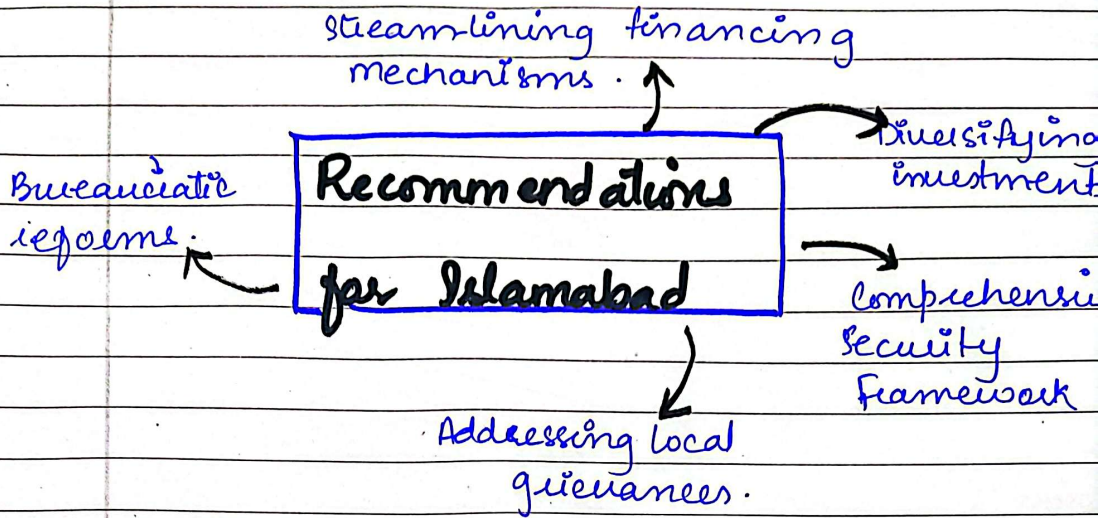 streamlining financing
mechanisms.
Diversifying
investment
Bureaucratic
reforms.
Recommendations
for Islamabad
Comprehensi
Security
Framework
Addressing local
grievances.